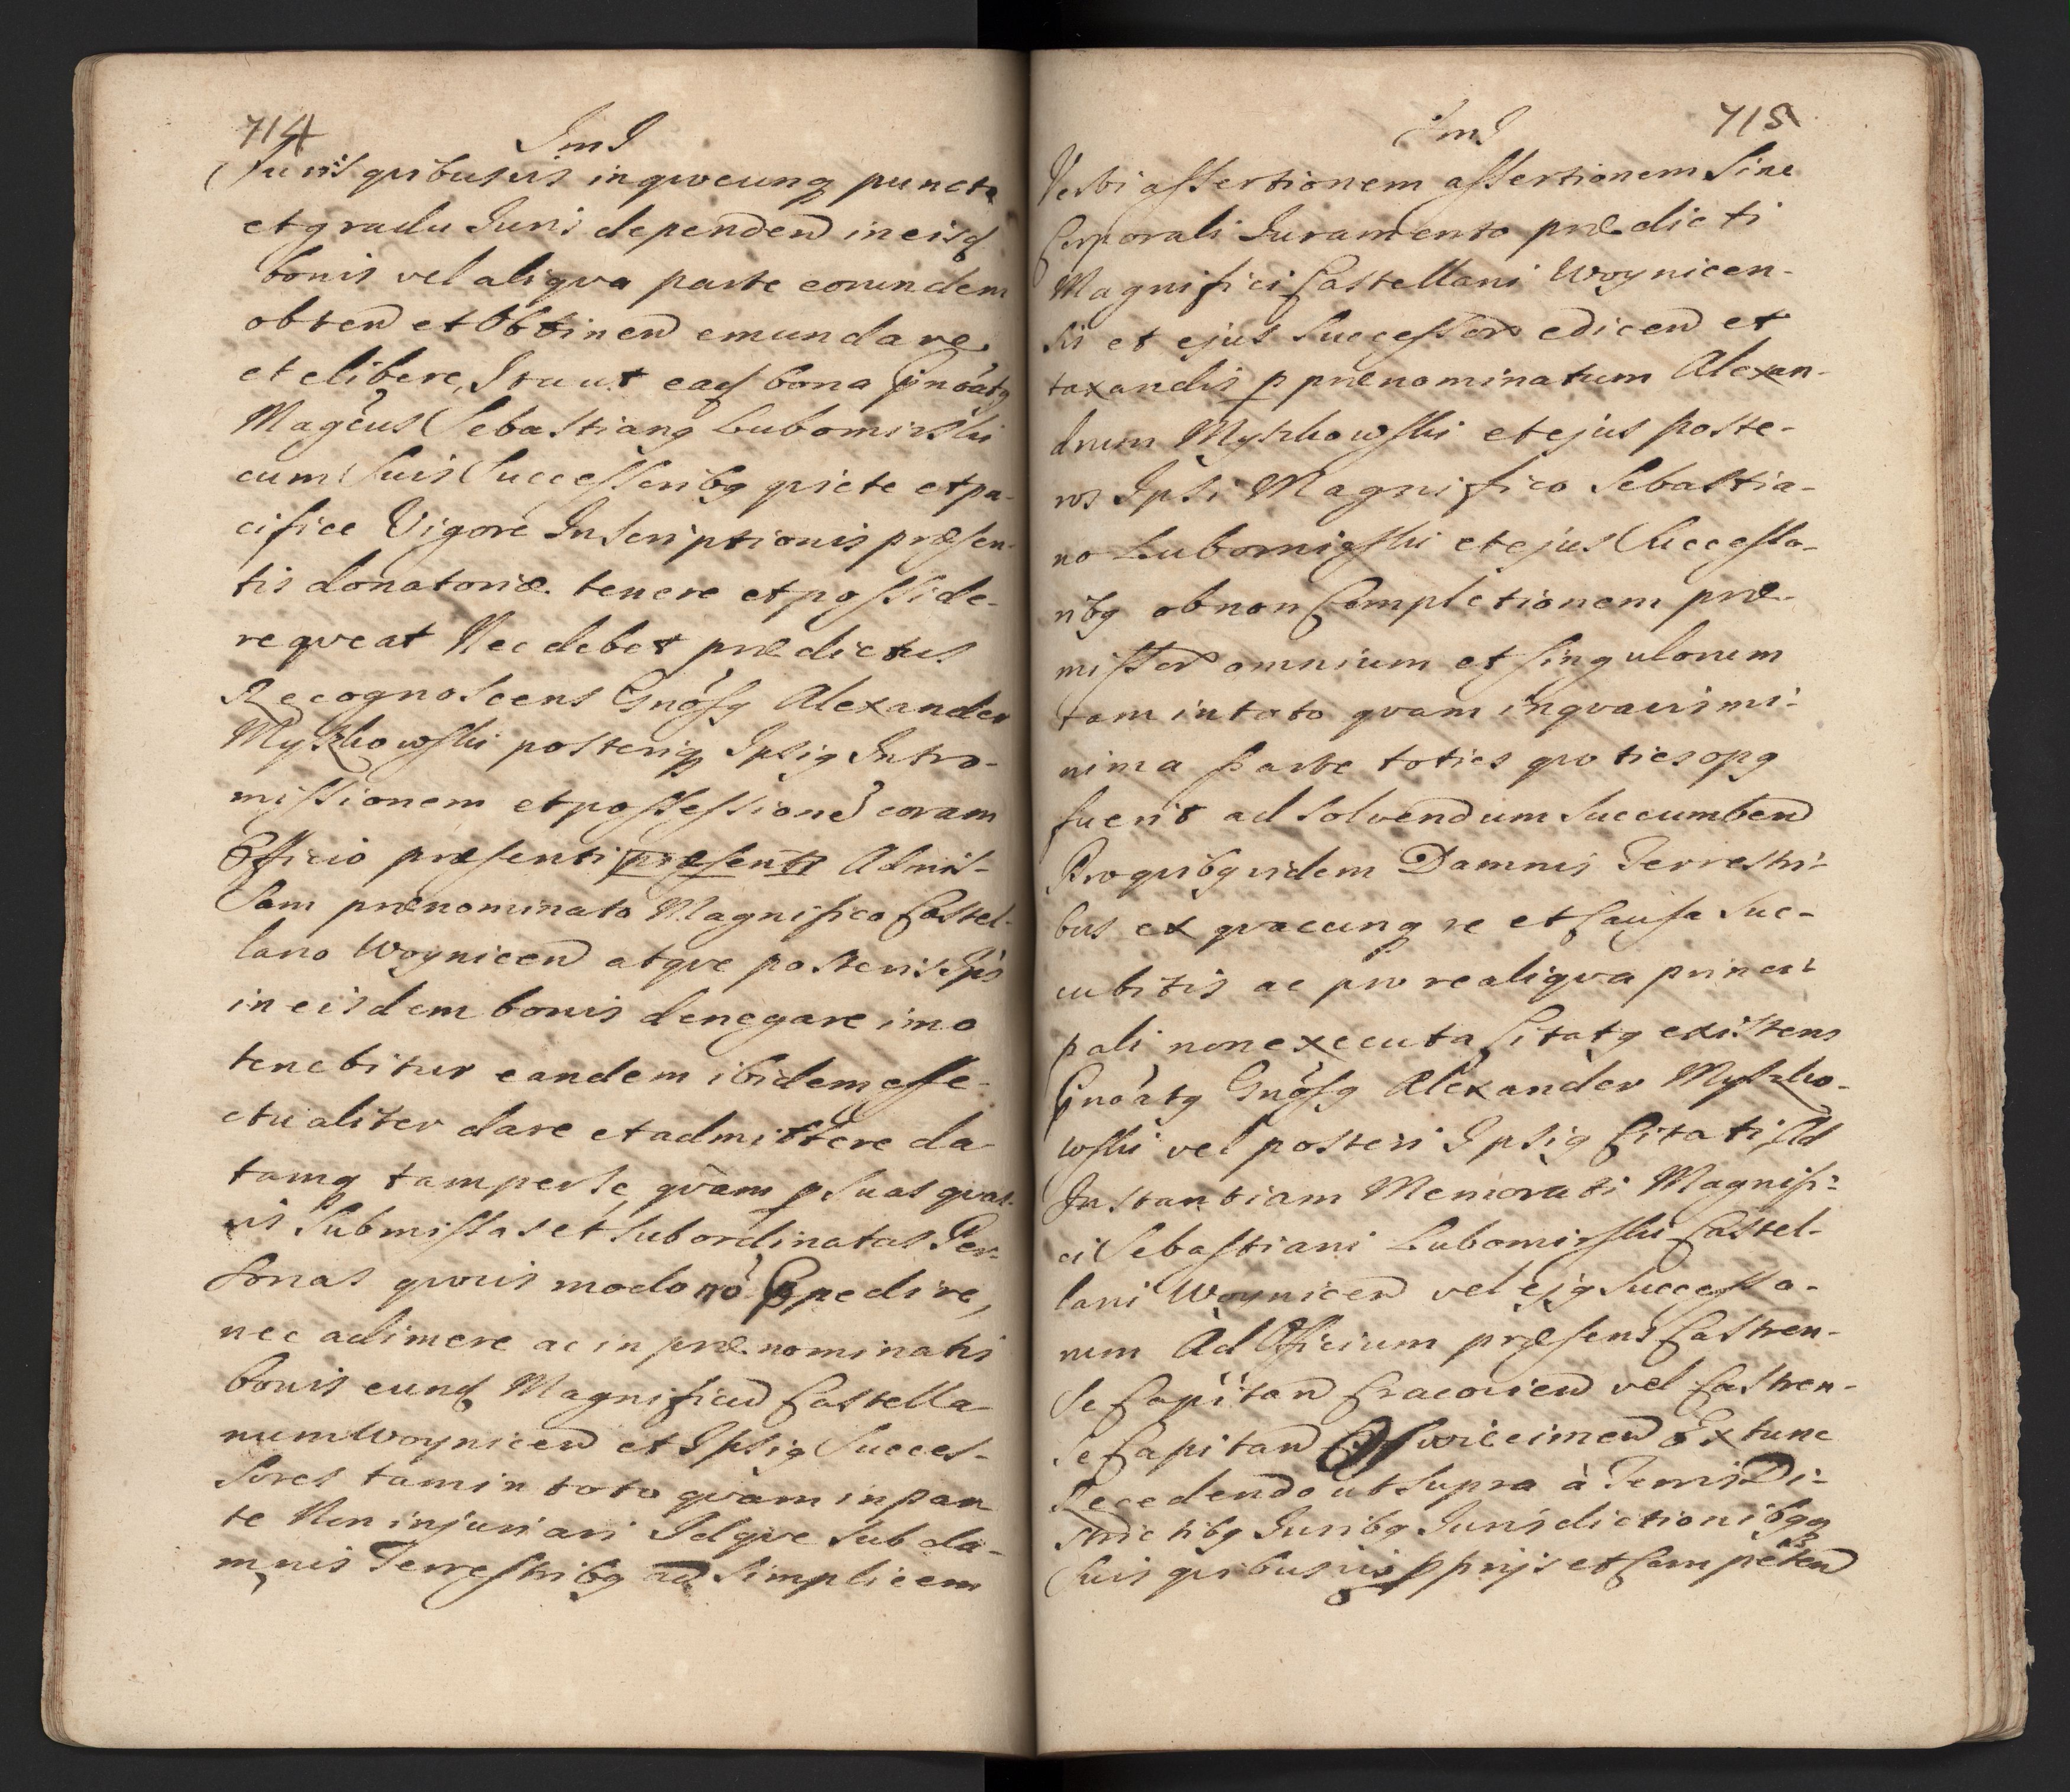 714
ImJ
Juris quibusvis inqvocunq puncto
et gradu Juris dependen in eisd
bonis vel aliqva parte eorundem
obten et Obtinen emundare
et elibere, Ita ut ead bona pnoatq
Magcus Sebastianq Lubomirski
cum suis Successoribq qviete et pa-
cifice Vigore Inscriptionis præsen-
tis donatoriæ tenere et posside-
re qveat Nec debet prædictus
Recognoscens Gnosq Alexander
Myszkowski posteriq Ipsiq Intro-
missionem et possessione coram
Officio præsenti præsenti Admis-
sam prænominato Magnifico Castel-
lano Woynicen atqve posteris Ips
in eisdem bonis denegare imo
tenebitur eandem ibidem effe-
ctualiter dare et admittere da
tamq tam per se, qvam p suas qvas-
vis Submissas et subordinatas Per-
sonas qvovis modo no Impedire,
nec adimere ac in prænominatis
bonis eund Magnificu Castella
num Woynicen et Ipsiq Succes-
sores tam in toto qvàm in par
te Non injuriari Idqve sub da-
mnis Terrestribq ad Simplicem
715
ImJ
Verbi assertionem assertionem Sine
Corporali Juramento prædicti
Magnifici Castellani Woynicen-
sis et ejus Successor edicen et
taxandis p prænominatum Alexan-
drum Myszkowski et ejus poste-
ros Ipsi Magnifico Sebastia-
no Lubomirski et ejus Successo-
ribq ob non Completionem præ-
missor omnium et singulorum
tam in toto qvam in qvavis mi-
nima parte toties qvoties opq
fuerit ad solvendum succumben
Pro qvibq videm Damnis Terrestri-
bus ex qvacunq re et Causa suc-
cubitis ac pro re aliqva princi
pali non executa Citatq existens
pnoatq Gnosq Alexander Myszko-
wski vel posteri Ipsiq Citati Ad
Instantiam Memorati Magnifi-
ci Sebastiani Lubomirski Castel-
lani Woynicen vel ejq Successo-
rum Ad Officium præsens Castren-
se Capitan Cracovien vel Castren-
se Capitan Osswiecimen Extunc
Recedendo ut supra à Terris Di-
strictibq Juribq Jurisdictionibqq
suis qvibusvis pprijs et Competen